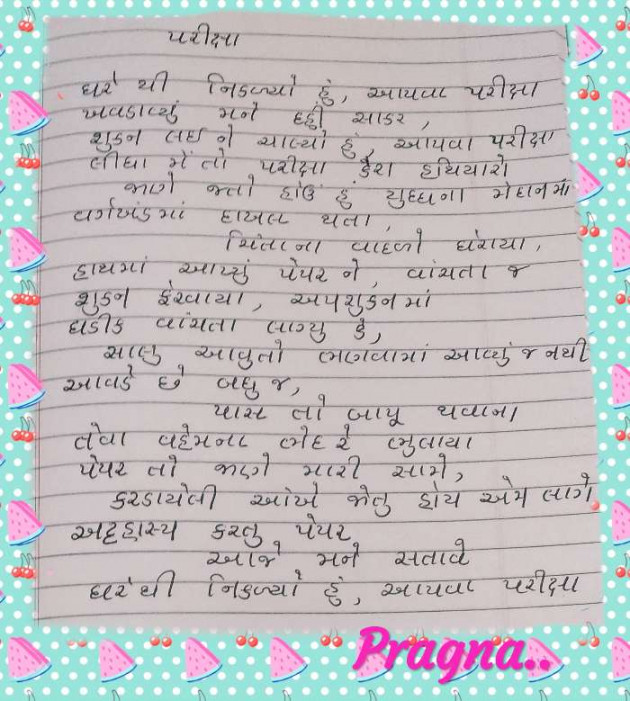 પરીક્ષા
ઘરે થી નિકળ્યો હું, આપવા પરીક્ષા
ખવડાવ્યું મને દહીં સાકર,
શુકન લઇ ને ચાલ્યો હું, આપવા પરીક્ષા
લીધા મેં તો પરીક્ષા કેરા હથિયારો
જાણે જતો હોઉં હું યુધ્ધના મેદાનમાં
વર્ગખંડમાં દાખલ થતા,
ચિંતાના વાદળો ઘેરાયા,
હાથમાં આવ્યું પેપર ને, વાંચતા જ
શુકન ફેરવાયા, અપશુકનમાં
ઘડીક વાંચતા લાગ્યુ કે,
સાલુ આવુતો ભણવામાં આવ્યું જ નથી
આવડે છે બધુ જ,
પાસ તો બાપૂ થવાના
તેવા વહેમના ભેદ રે ભુલાયા
પેપર તો જાણે મારી સામે,
કરડાયેલી આંખે જોતુ હોય એમ લાગે
અટ્ટહાસ્ય કરતુ પેપર
આજે મને સતાવે
ઘરે થી નિકળ્યો હું, આપવા પરીક્ષા
Pragna..